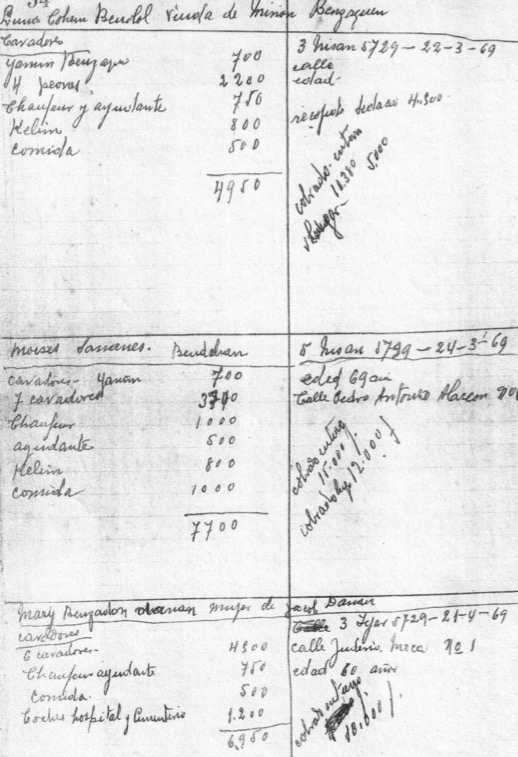 34
Cohem Bendol Viuda de Mimon Benzaquen
Cavadores
Yamin
700
4 peones
2200
Chaufeur y ayudante
750
Kelim
800
comida
500
4950
3 Nisan 5729 - 22-3-69
calle
edad.
4.500
cobrado. entero
5000
Moises Sananes. Bendahan
cavadores - Yamin
700
7 cavadores
Chaufeur
1000
ayudante
500
Kelim
800
comida
1000
7700
5 Nisan 5729 - 24-3-69
eded 69
Calle Pedro Antonio Alarcon
cobrado entero
15.000
cobrado
12.000
Mary Benzadon mujer de Jacob
cavadores
6 cavadores
4500
Chaufeur ayudante
750
Comida.
500
Coches hospital y Cementerio
1.200
6,950
Calle 3 Iyar 5729-21-4-69
calle Meca Nº 1
edad 60 años
cobrado entero
10.000